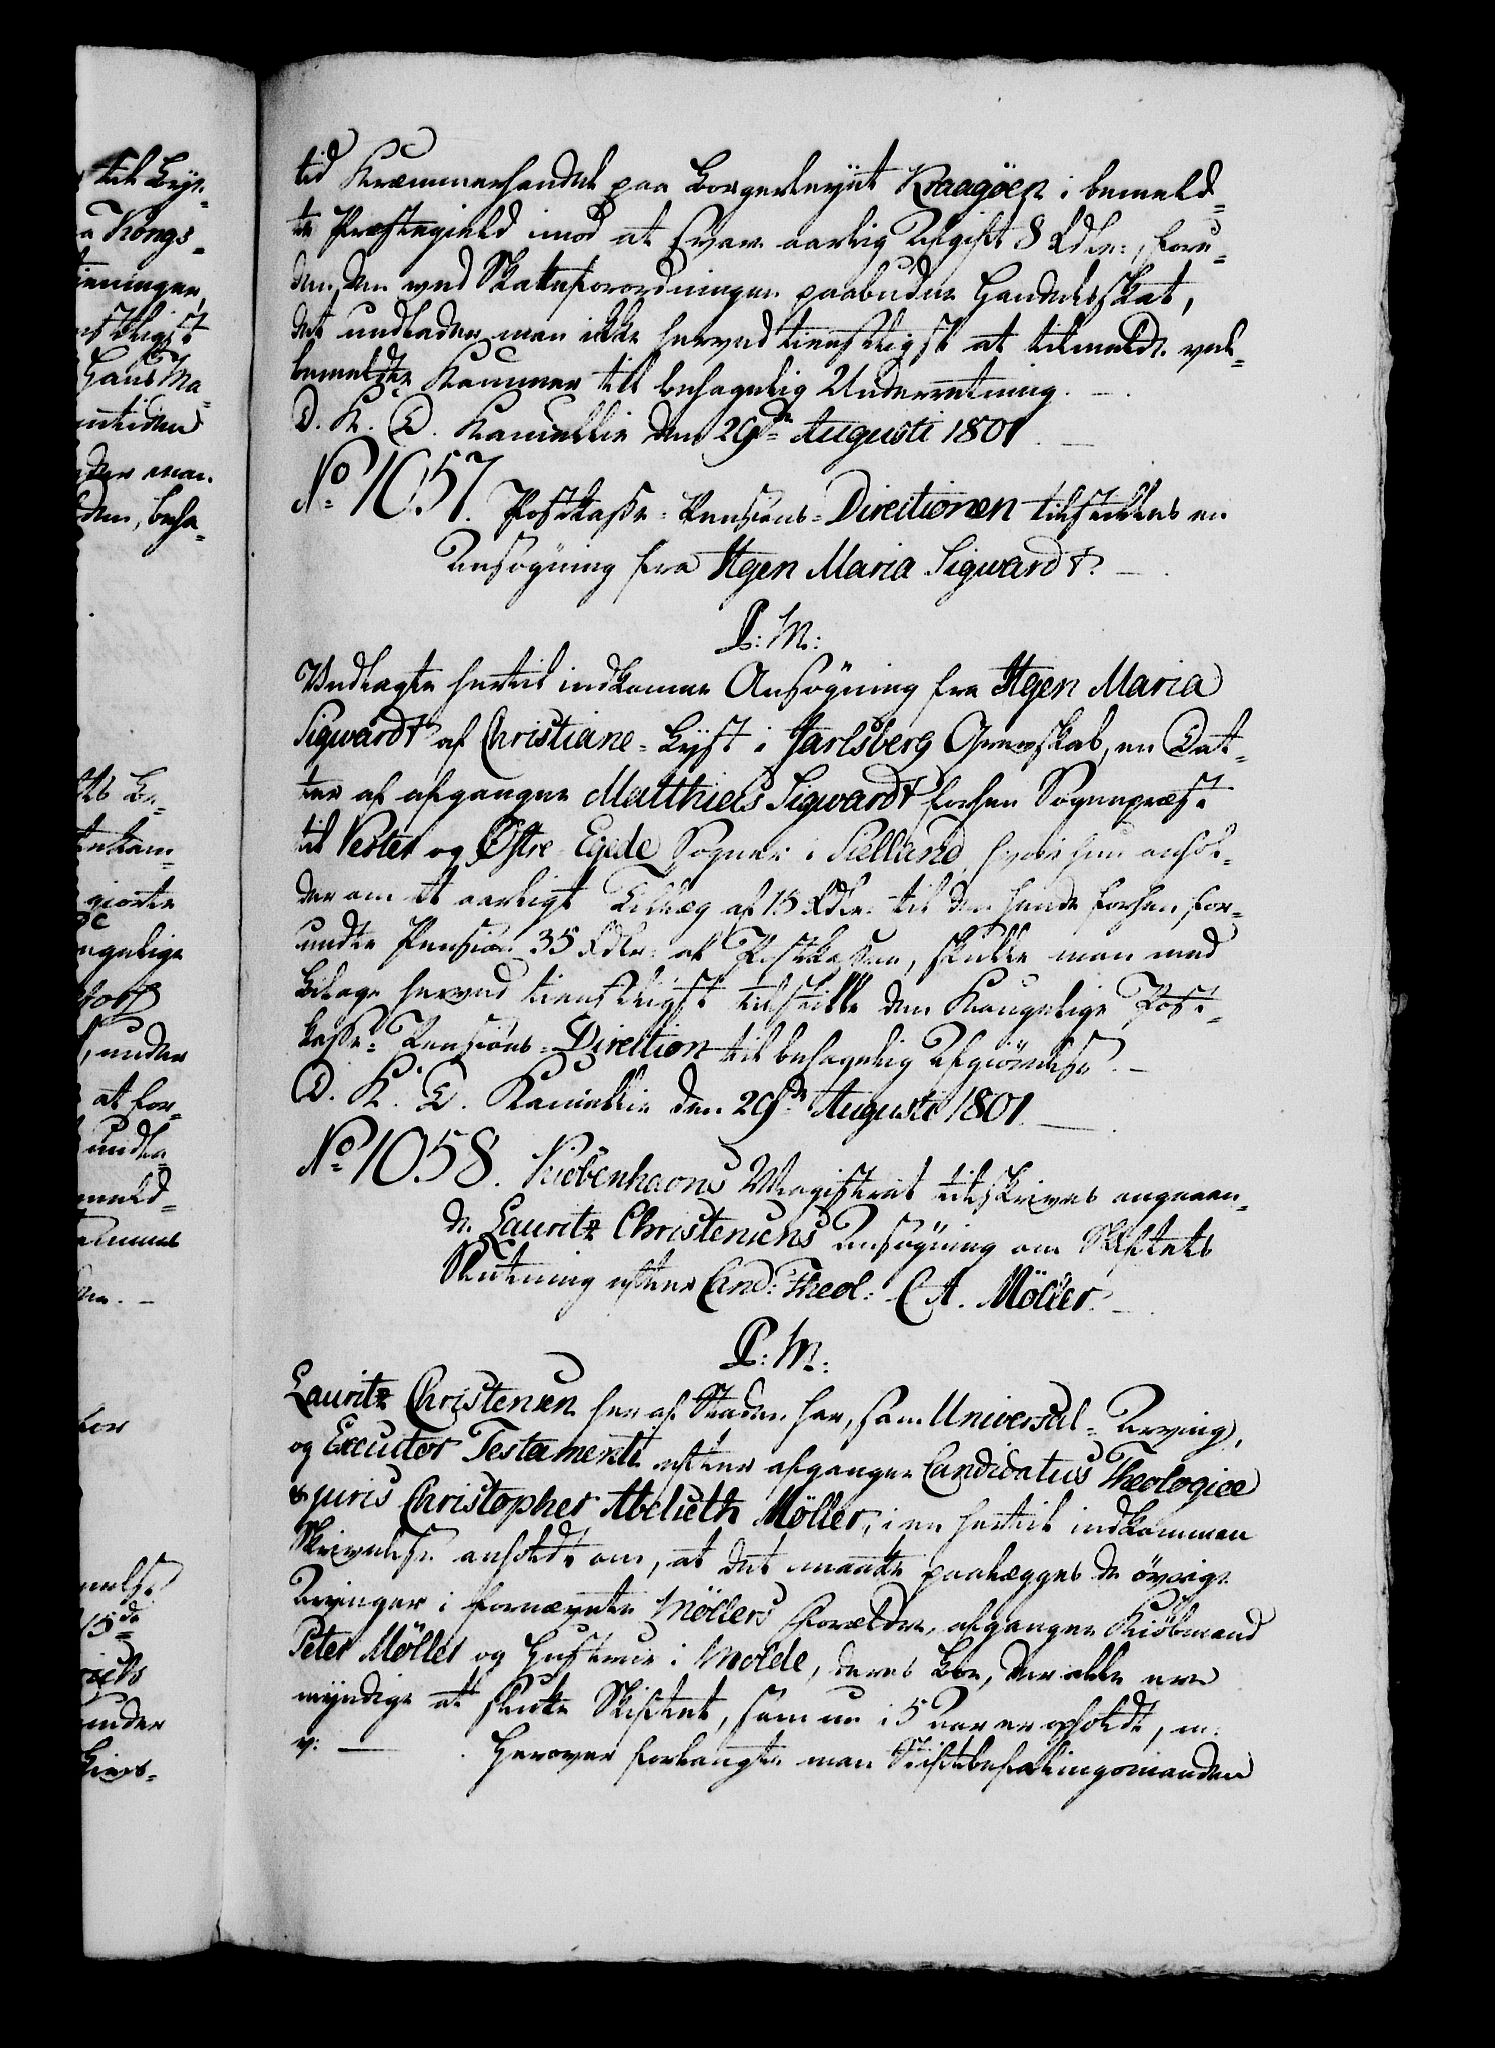 tid Kræmmerhandel paa Borgerleyet Kraagöen i bemeld-
te Præstegield imod at svare aarlig Afgift 8 Rdlr:, foru-
den den ved Skatteforordningen paabudne Handelsskat,
det undlader man ikke herved tienstligst at tilmelde vel-
bemeldte Kammer til behagelig Underretning. -
D. K. D. Kancellie den 29de Augusti 1801. -
No 1057. Postkasse-Pensions-Directionen tilstilles en
Ansøgning fra Agen Maria Sigwardt. -
P: M:
Vedlagte hertil indkomne Ansögning fra Agen Maria
Sigwardt af Christiane-Lyst i Jarlsberg Grevskab, en Dat-
ter af afgangne Matthias Sigwardt forhen Sognepræst
til Vester og Østre Egede Sogner i Sielland, hvori hun anhol-
der om et aarligt Tillæg af 15 Rdlr. til den hende forhen for-
undte Pension 35 Rdlr: af Postkassen, skulle man med
Bilage herved tienstligst tilstille den Kongelige Post-
kasse-Pensions-Direction til behagelig Afgiörelse. -
D. K. D. Kancellie den 29de Augusti 1801. -
No 1058. Kiöbenhavns Magistrat tilskrives angaaen-
de Lauritz Christensens Ansögning om Skiftets
Slutning efter Cand: Theol: C A. Möller. -
P: M:
Lauritz Christensen her af Staden har, som Universal-Arving,
og Executor Testamenti efter afgangne Candidatus Theologiæ
& juris Christopher Abelseth Möller, i en hertil indkommen
Skrivelse anholdt om, at det maatte paalægges de övrige
Arvinger i fornævnte Möllers Forældre, afgangne Kiöbmand
Peter Möller og Hustrue i Molde, deres Boe, der alle ere
myndige at slutte Skiftet, som nu i 5 Aar er opholdt, m:
v: — . Herover forlangte man Stiftbefalingsmanden
til Lys-
Kongs-
ieninger,
nstligst
Hans Ma-
der man
den, beha-
giorte
ngelige
, under
at for-
undla-
meld-
15de
under